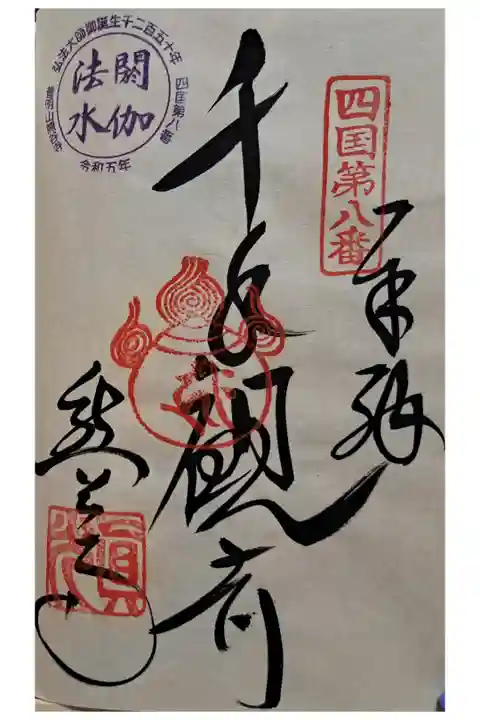 四国第八番
奉拝
千手観音
熊谷寺
弘法大師御誕生千二百五十年
四国第八番
閼伽
法水
普明山熊谷寺
令和五年